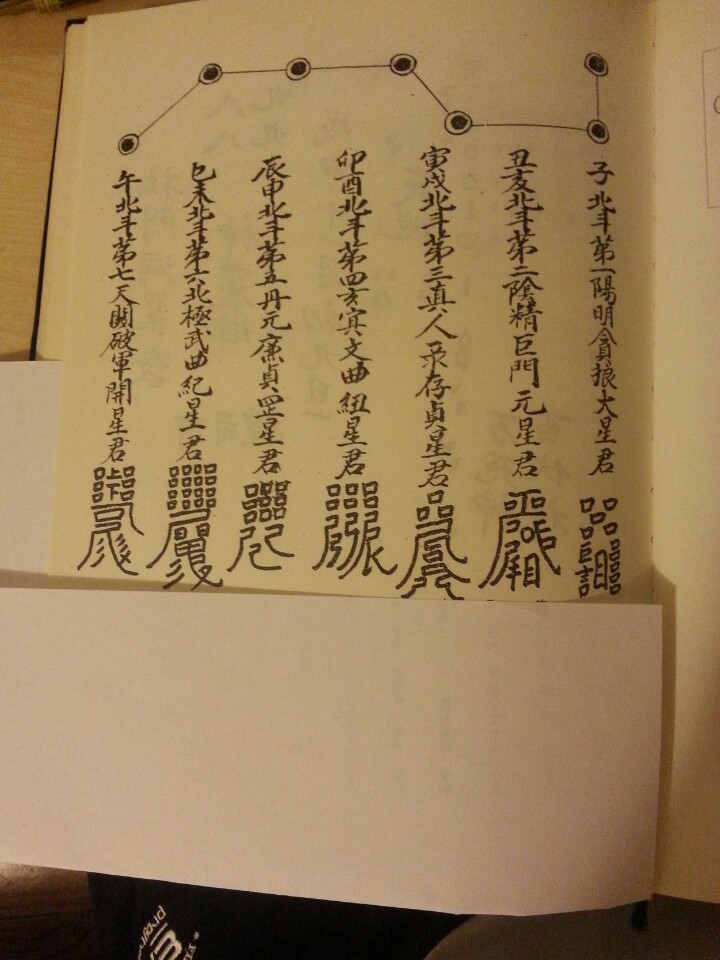 子北斗第一陽明貪狼大星君
丑亥北斗第二陰精巨門元星君
寅戌北斗第三真人录存貞星君
卯酉北斗第四亥冥文曲紐星君
辰申北斗第五丹元廉貞罡星君
巳未北斗第六北極武曲紀星君
午北斗第七天關破軍開星君